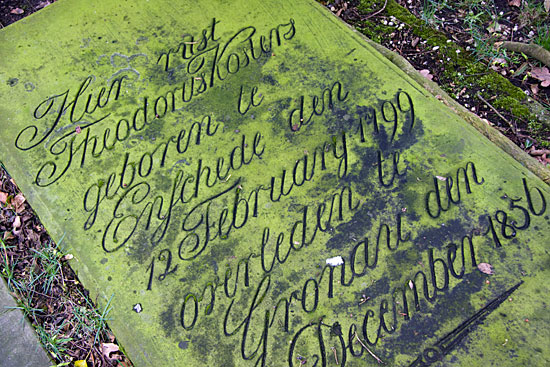 Hier rust
Theodorus Kosters
geboren te
Enschede den
12 February 1799
overleden te
Gronau den
December 1850